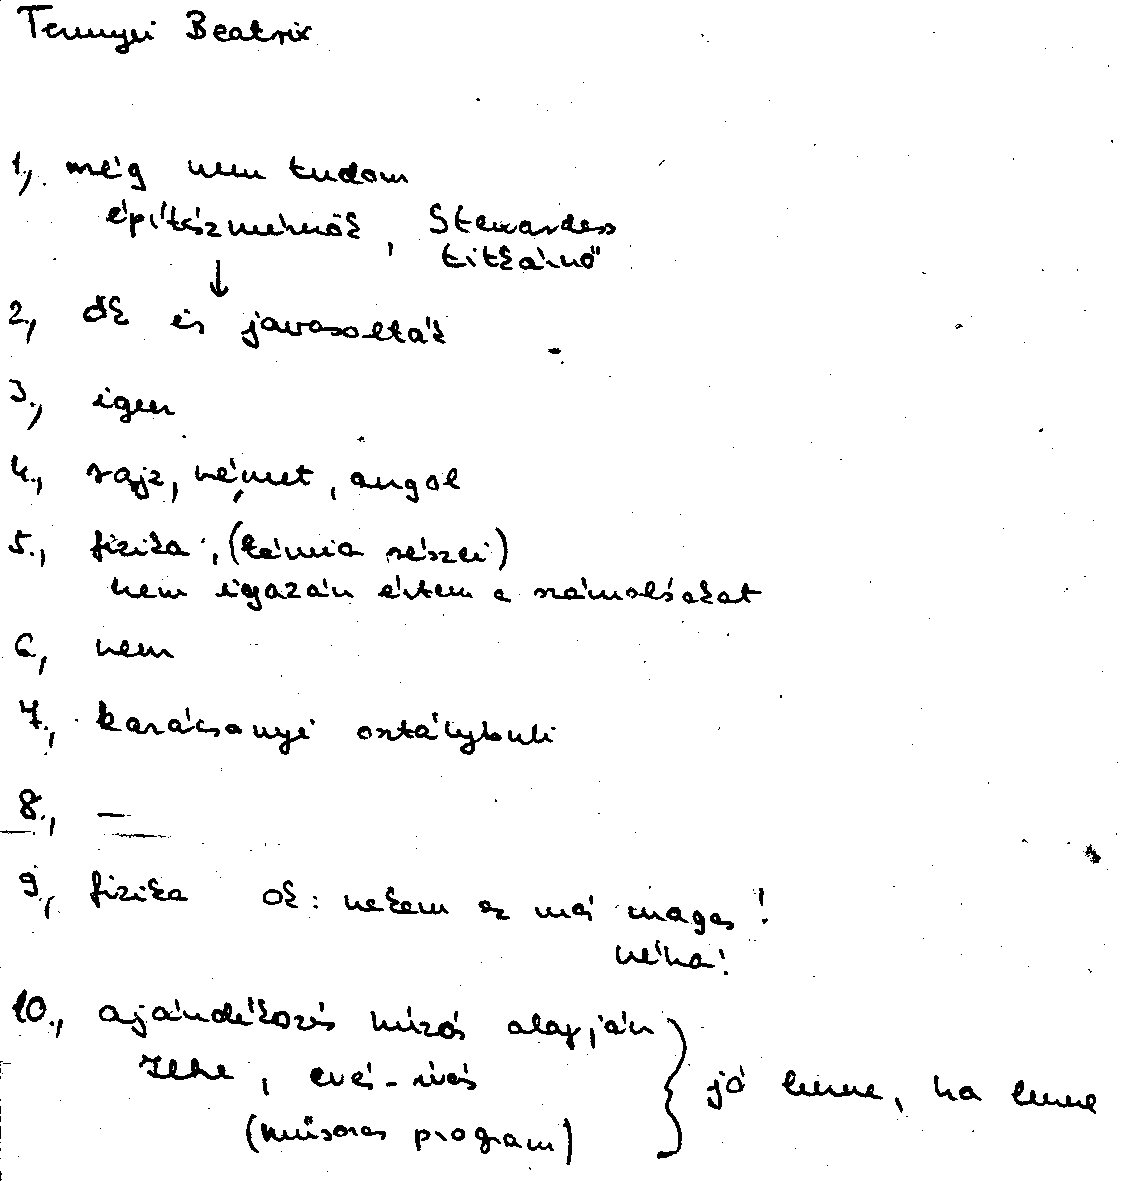 Beatrix
1., még nem tudom
építészmérnök, Stewardess
titkárnő
↓
2., ők is javasolták
3., igen
4., rajz, német, angol
5., fizika, (kémia részei)
nem igazán értem a számolásokat
6., nem
7., karácsonyi osztálybuli
8., —
9., fizika ok: nekem ez már magas!
néha!
10., ajándékozás húzás alapján
Zene, evés-ivás } jó lenne, ha lenne
(műsoros program)